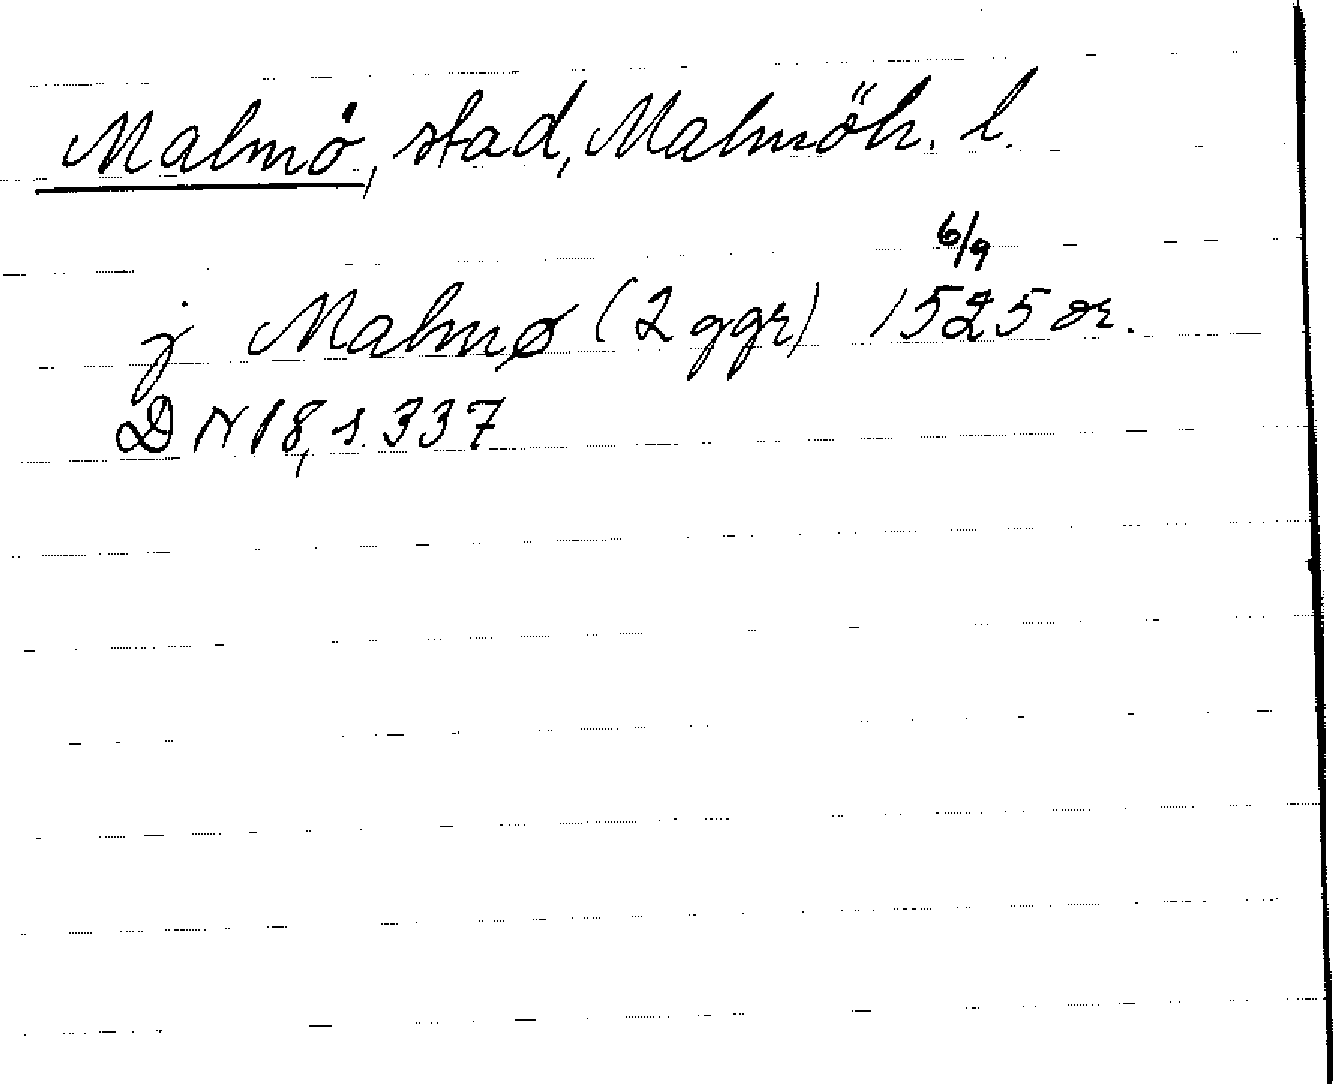 Malmö, stad, Malmöh. l.
6/9
j Malmø (2 ggr) 1525 or.
DN 18, s. 337